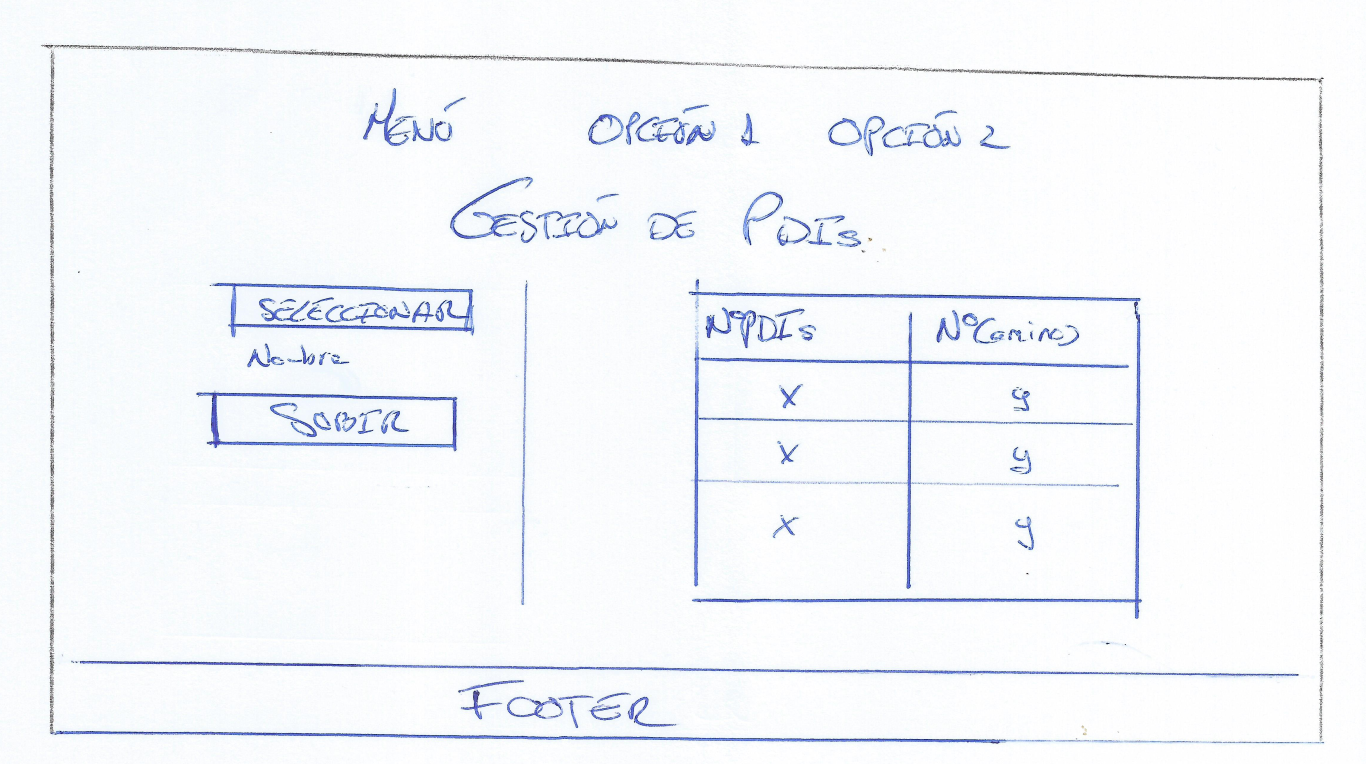 MENÚ OPCIÓN 1 OPCIÓN 2
GESTIÓN DE PDIs.
SELECCIONAR
Nombre
SUBIR
Nº PDIs Nº Caminos
x y
x y
x y
FOOTER